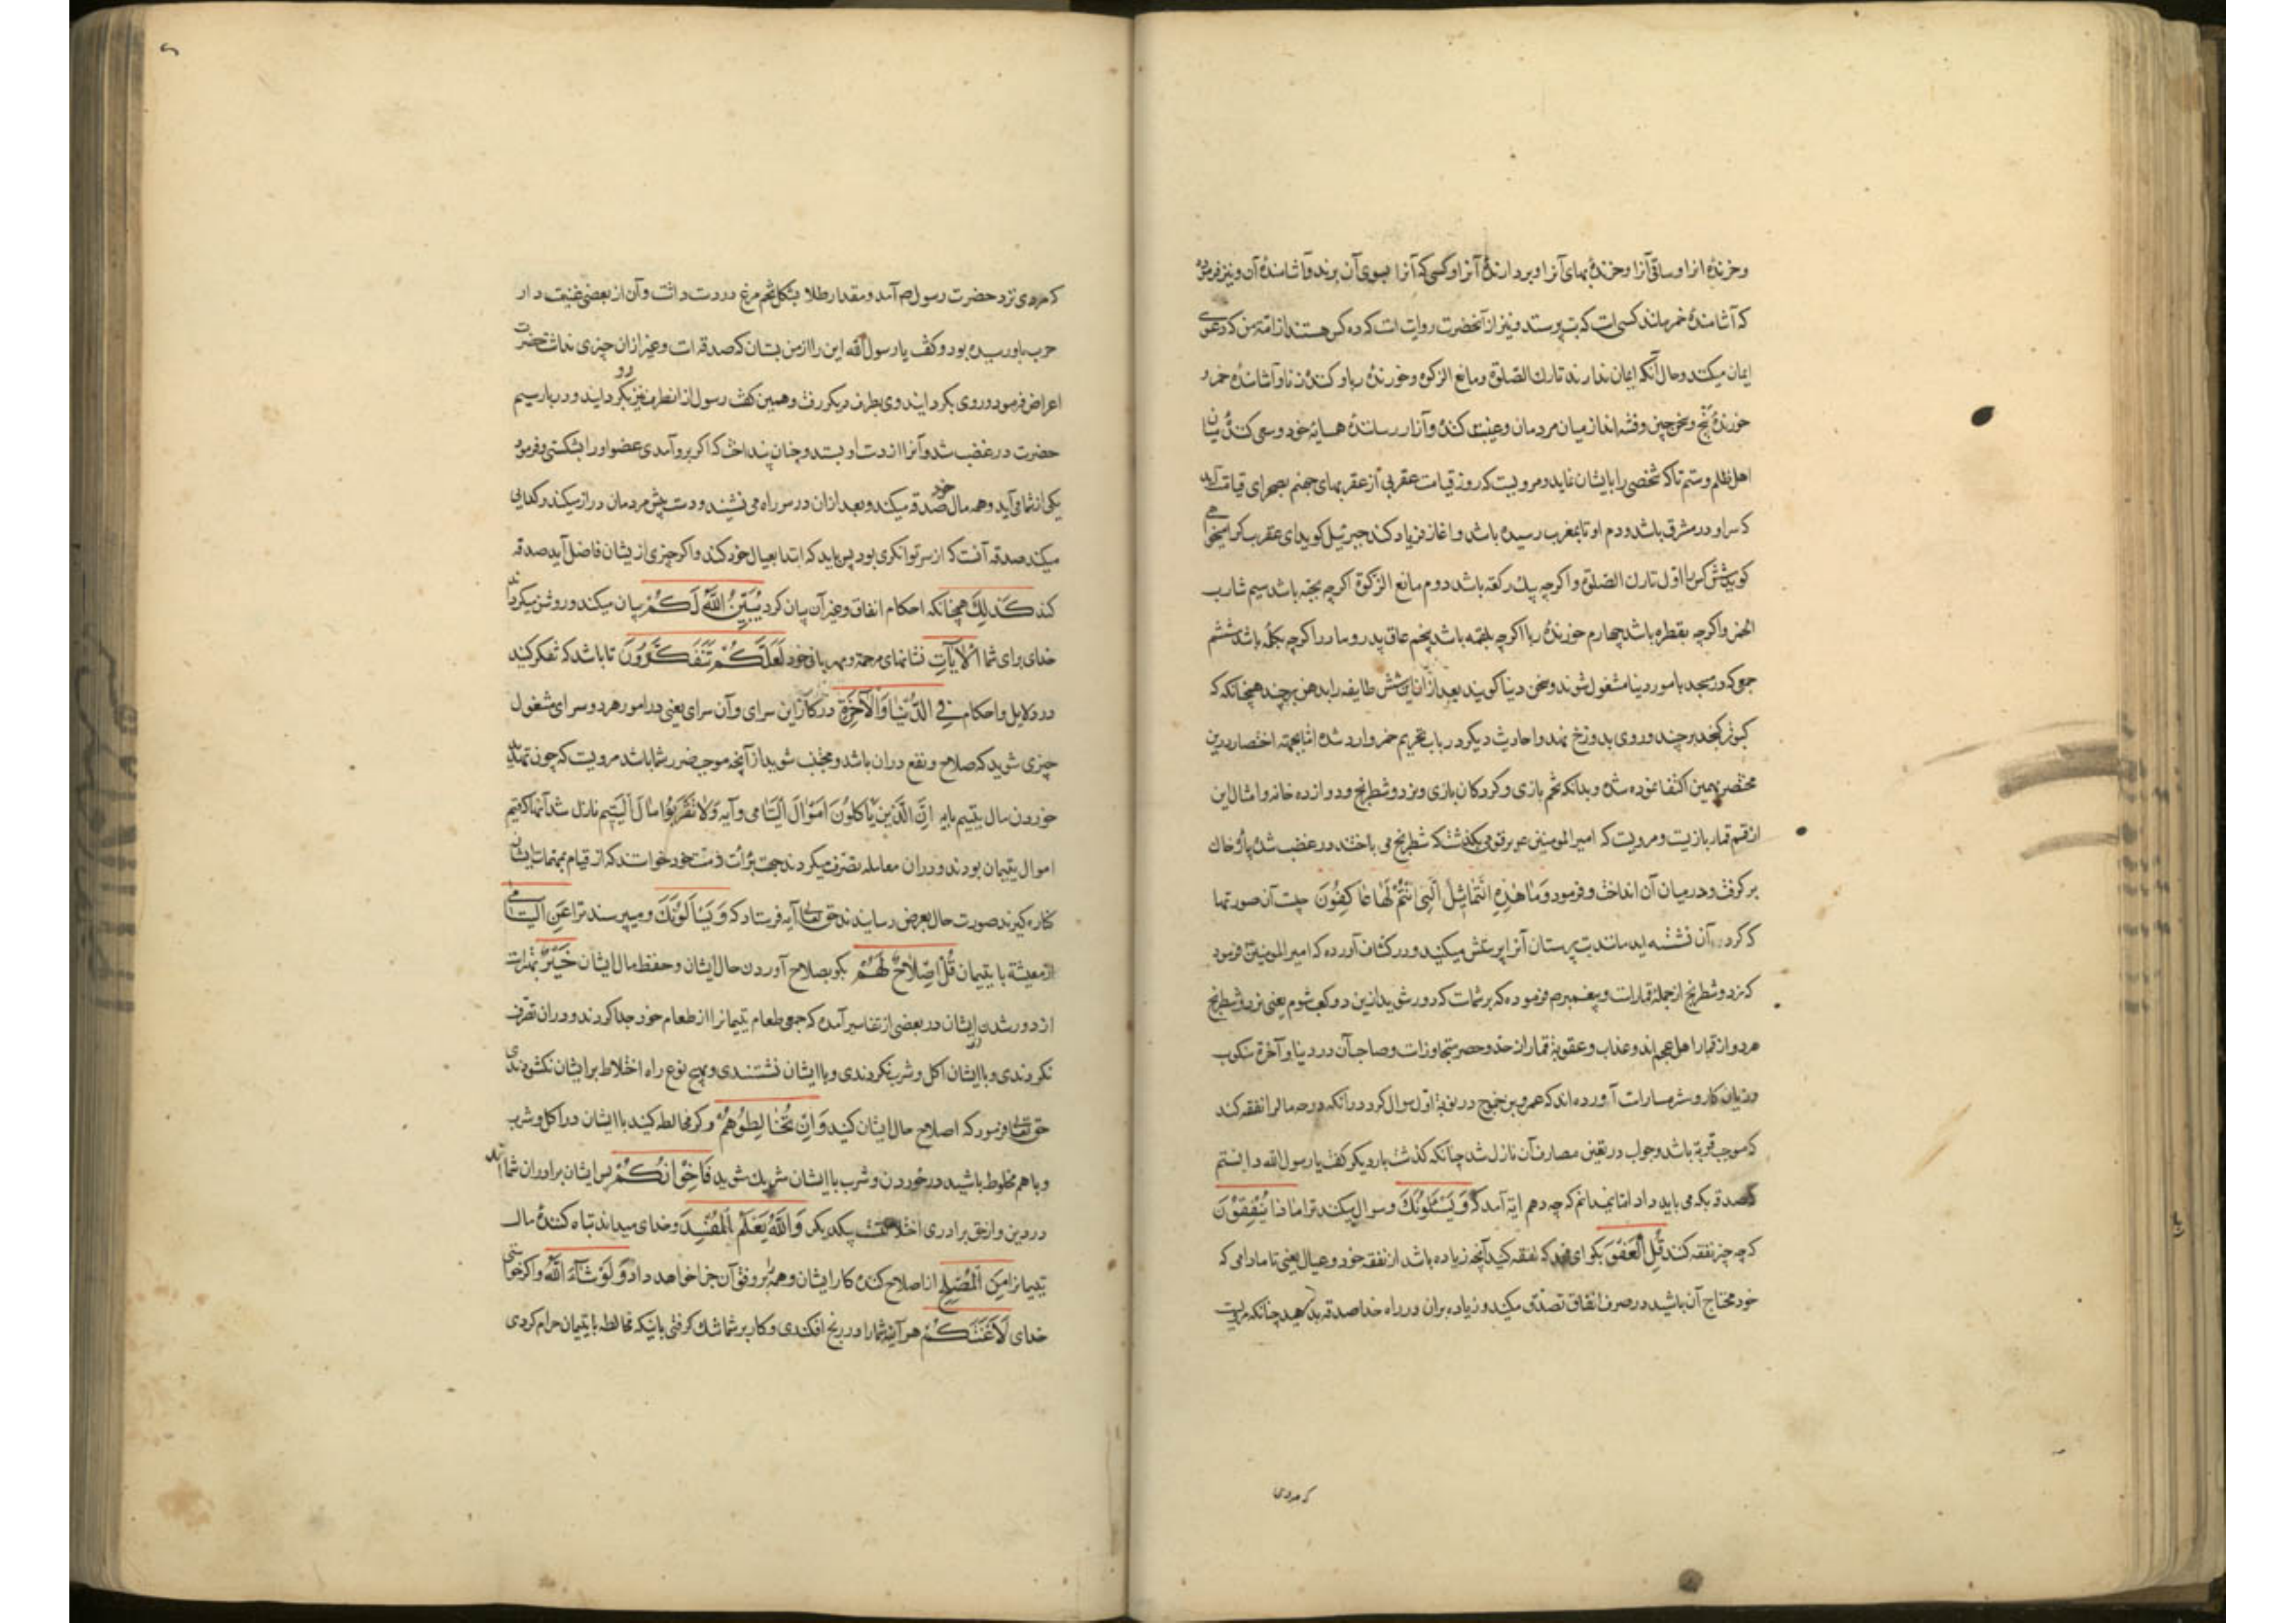 و خرندهٔ انرا و ساقی آنرا و خرندهٔ بهای آنرا و بردارندهٔ آنرا و کسی که آنرا بسوی آن برند و آشامندهٔ آن و نیز فرموده
که آشامندهٔ خمر مانند کسی است که بت پرستد و نیز از آنحضرت روایت است که ده کس هستند از امة من که دعوی
ایمان میکنند و حال آنکه ایمان ندارند تارك الصلوة و مانع الزکوة و خورندهٔ ربا و کنندهٔ زنا و آشامندهٔ خمر و
خورندهٔ بنج و سخن چین و فتنه انداز میان مردمان و غیبت کننده و آزار رسانندهٔ همسایهٔ خود و سعی کننده میان
اهل ظلم و ستم تا که شخصی را بایشان نماید و مرویست که روز قیامت عقربی از عقربهای جهنم بصحرای قیامت آید
که سر او در مشرق باشد و دم او تا بمغرب رسیده باشد و اغاز فریاد کند جبرئیل کوید ای عقرب کرا میخواهی
کوید شش کس را اول تارك الصلوة و اکرچه یك رکعة باشد دوم مانع الزکوة اکرچه بحبه باشد سیم شارب
الخمر و اکرچه بقطره باشد چهارم خورندهٔ ربا اکرچه بلقمه باشد پنجم عاق پدر و مادر و اکرچه بکلمه باشد ششم
جمعی که در مسجد بامور دینا مشغول شوند و سخن دینا کویند بعد از آن این شش طایفه را بدهن برچیند همچنانکه که
کبوتر کنجد برچیند و روی بدوزخ نهد و احادیث دیکر در باب تحریم خمر وارد شده اما بجهته اختصار درین
مختصر بهمین اکتفا نموده شد و بدانکه تخم بازی و کردکان بازی و نرد و شطرنج و دوازده خانه و امثال این
از قسم قمار بازیست و مرویست که امیر المومنین ع بر قومی بکذشت که شطرنج می باختند در غضب شد پارهٔ خاك
بر کرفت و در میان آن انداخت و فرمود وَمَا هٰذِهِ التَّمَاثِيلُ الَّتِي اَنْتُمْ لَهَا عَاكِفُونَ چیست آن صورتها
که کرد آن نشسته اید مانند بت پرستان آنرا پرستش میکنید و در کشاف آورده که امیر المومنین ع فرمود
که نرد و شطرنج از جملهٔ قمارات و پیغمبر ص فرموده که بر شمات که دور شوید ازین دو کعب شوم یعنی نرد و شطرنج
هر دو از قمار اهل عجم اند و عذاب و عقوبة قمار از حد و حصر متجاوزات و صاحب آن در دینا و آخرة منکوب
و زیان کار و شرمسارات آورده اند که عمرو بن جموح در نوبة اول سوال کرد در آنکه در چه مال را نفقه کند
که موجب قربة باشد و جواب در تعیین مصارف آن نازل شد چنانکه کذشت بار دیکر کفت یا رسول الله دانستم
که صدقه بکه می باید داد اما نمیدانم که چه دهم ایة آمد که وَيَسْئَلُونَكَ و سوال میکنند ترا مَاذَا يُنْفِقُوْنَ
که چه چیز نفقه کنند قُلِ الْعَفْوَ بکو ای محمد که نفقه کنید آنچه زیاده باشد از نفقه خود و عیال یعنی تا مادامی که
خود محتاج آن باشید در صرف انفاق تصدق میکنید و زیاده بران در راه خدا صدقه بدهید چنانکه مرویست
که مردی
که مردی نزد حضرت رسول ص آمد و مقدار طلا بشکل تخم مرغ در دست داشت و آن از بعضی غنیمت دار
حرب باو رسیده بود و کفت یا رسول الله این را از من بستان که صدقه ات و غیر ازان چیزی نداشت حضرت
اعراض فرمود و روی بکردایند وی بطرف دیکر رفت و همین کفت رسول از انطرف نیز رو بکردایند و در بار سیم
حضرت در غضب شد و آنرا از دست او بستد و چنان بینداخت که اکر برو آمدی عضو او را بشکستی و فرمود
یکی از شما می آید و همه مال خود صدقه میکند و بعد ازان در سر راه می نشیند و دست پیش مردمان دراز میکند و کدایی
میکند صدقه آنست که از سر توانکری بود پس باید که ابتدا بعیال خود کند و اکر چیزی از یشان فاضل آید صدقه
کند كَذٰلِكَ همچنانکه احکام انفاق و غیر آن بیان کرد يُبَيِّنُ اللّٰهُ لَكُمْ بیان میکند و روشن میکرداند
خدای برای شما اَلْاٰيَاتِ نشانهای مرحمة و مهربانی خود لَعَلَّكُمْ تَتَفَكَّرُوْنَ تا باشد که تفکر کنید
در دلایل و احکام فِي الدُّنْيَا وَالْاٰخِرَةِ در کار این سرای و آن سرای یعنی در امور هر دو سرای مشغول
چیزی شوید که صلاح و نفع دران باشد و مجتنب شوید از آنچه موجب ضرر شما باشد مرویست که چون تهدید
خوردن مال یتیم بایهٔ اِنَّ الَّذِيْنَ يَاْكُلُوْنَ اَمْوَالَ الْيَتَامٰى و آیهٔ وَلَا تَقْرَبُوْا مَالَ الْيَتِيمِ نازل شد آنها که قیم
اموال یتیمان بودند و دران معامله تصرف میکردند جهت برأت ذمت خود خواستند که از قیام بمهمات ایشان
کناره کیرند صورت حال بعرض رسایندند حق تعالی آیه فرستاد که وَيَسْاَلُوْنَكَ و میپرسند ترا عَنِ الْيَتَامٰى
از معیشة با یتیمان قُلْ اِصْلَاحٌ لَهُمْ بکو بصلاح آوردن حال ایشان و حفظ مال ایشان خَيْرٌ بهترات
از دور شدن از ایشان در بعضی از تفاسیر آمده که جمعی طعام یتیمانرا از طعام خود جدا کردند و دران تصرف
نکردندی و با ایشان اکل و شرب نکردندی و با ایشان ننشستندی و بهیچ نوع راه اختلاط بر ایشان نکشودندی
حق تعالی فرمود که اصلاح حال ایشان کنید وَاِنْ تُخَالِطُوْهُمْ و کر مخالطه کنید با ایشان در اکل و شرب
و با هم مخلوط باشید در خوردن و شرب با ایشان شریك شوید فَاِخْوَانُكُمْ پس ایشان برادران شما اند
در دین و از حق برادری اختلاطست بیکدیکر وَاللّٰهُ يَعْلَمُ الْمُفْسِدَ و خدای میداند تباه کنندهٔ مال
یتیمانرا مِنَ الْمُصْلِحِ از اصلاح کننده کار ایشان و همه را بر وفق آن جزا خواهد داد وَلَوْ شَآءَ اللّٰهُ و اکر خواستی
خدای لَاَعْنَتَكُمْ هر آینه شما را در رنج افکندی و کار بر شما تنك کرفتی باینکه مخالطه با یتیمان حرام کردی